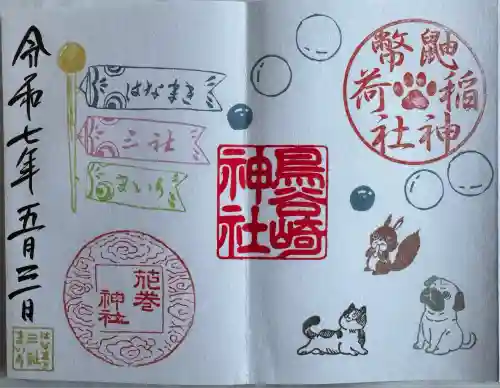 鼬幣
稲荷
神社
鳥谷崎
神社
はなまき
三社
まいり
花巻
神社
令和七年五月三一日
はなまき
三社
まいり